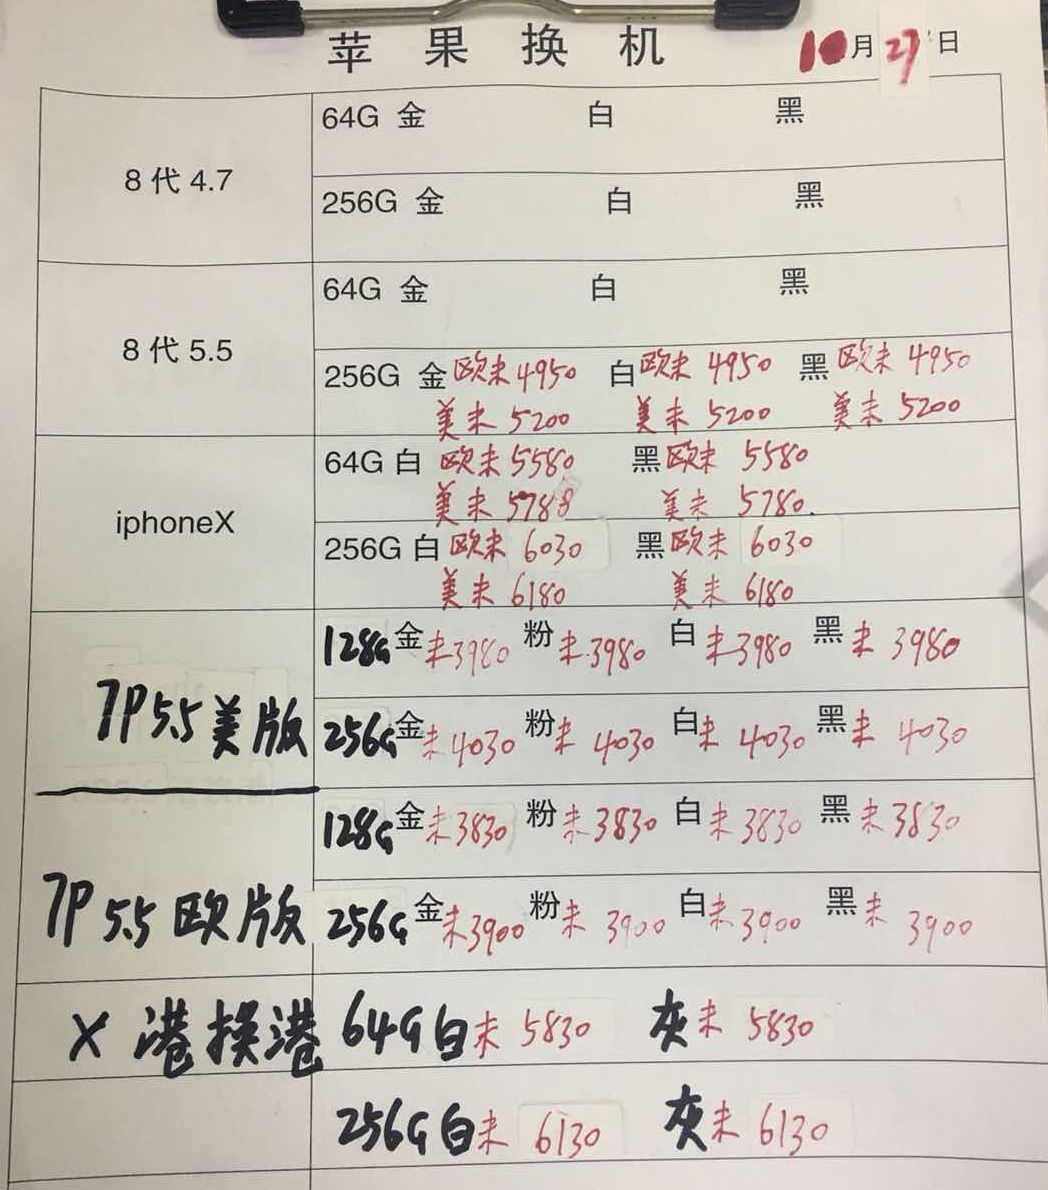 苹果换机 10月27日
8代4.7
64G 金 白 黑
256G 金 白 黑
8代5.5
64G 金 白 黑
256G 金 欧未 4950 白 欧未 4950 黑 欧未 4950
美未 5200 美未 5200 美未 5200
iphoneX
64G 白 欧未 5580 黑 欧未 5580
美未 5788 美未 5780.
256G 白 欧未 6030 黑 欧未 6030
美未 6180 美未 6180
7P 5.5 美版
128G 金 未 3980 粉 未 3980 白 未 3980 黑 未 3980
256G 金 未 4030 粉 未 4030 白 未 4030 黑 未 4030
7P 5.5 欧版
128G 金 未 3830 粉 未 3830 白 未 3830 黑 未 3830
256G 金 未 3900 粉 未 3900 白 未 3900 黑 未 3900
X 港换港 64G 白 未 5830 灰 未 5830
256G 白 未 6130 灰 未 6130